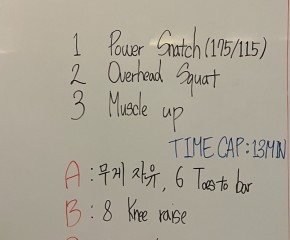 1 Power Snatch (175/115)
2 Overhead Squat
3 Muscle up
TIME CAP : 13MIN
A : 무게 자유, 6 Toes to bar
B : 8 Knee raise